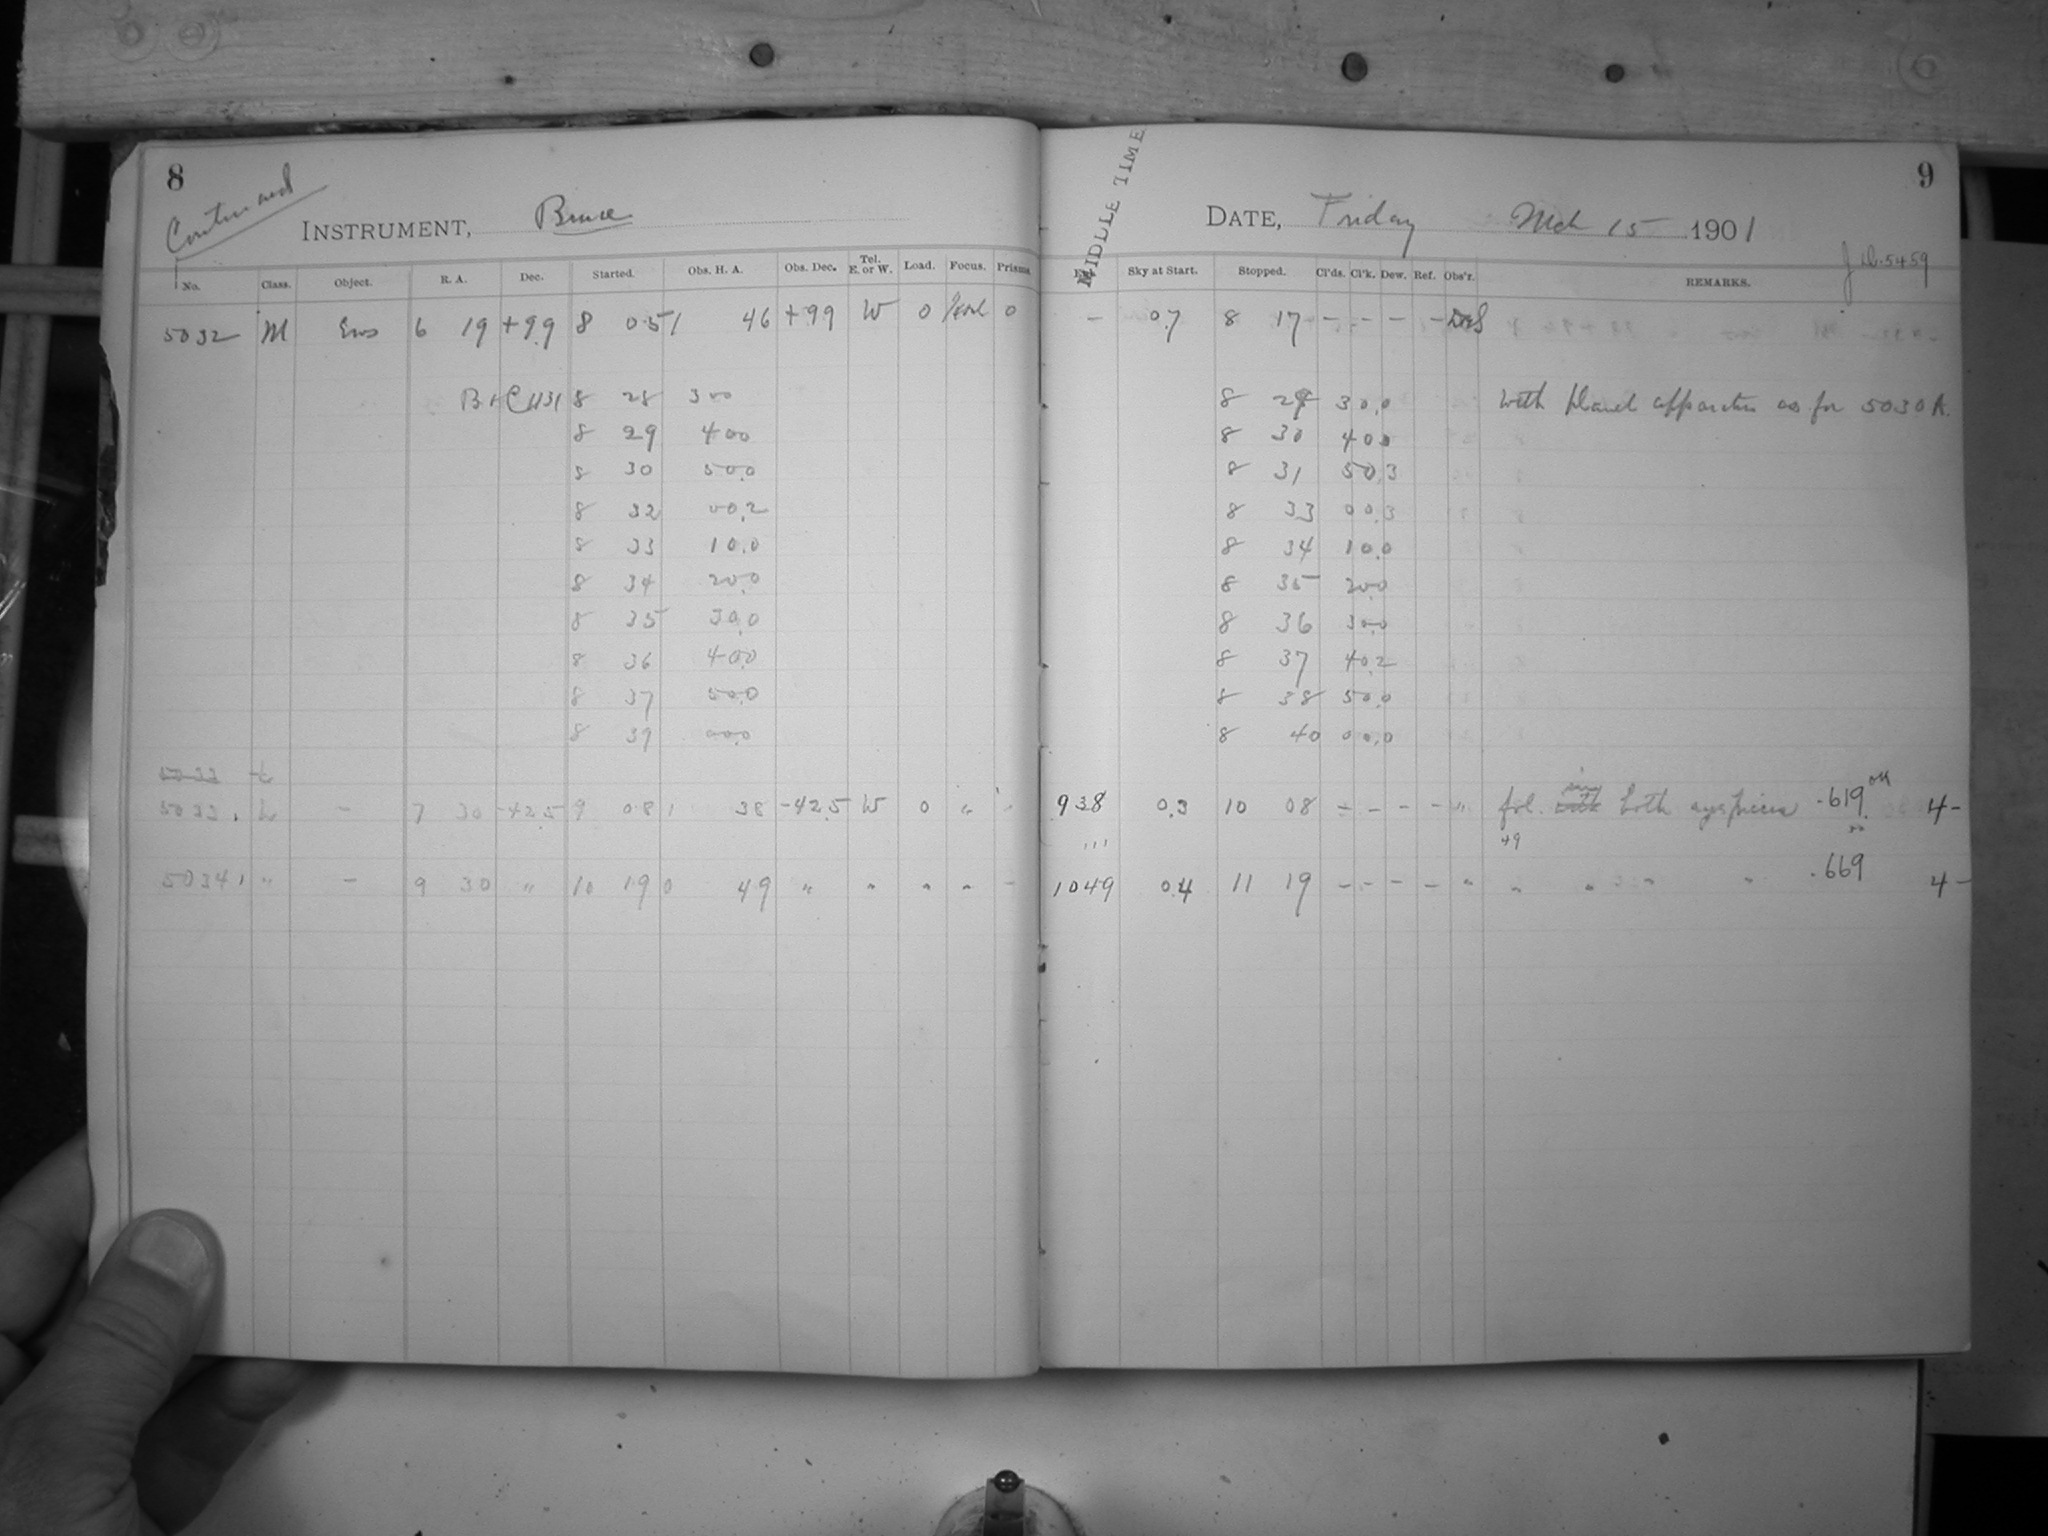 8
Continued
INSTRUMENT, Bruce
No. Class. Object. R. A. Dec. Started. Obs. H. A. Obs. Dec. Tel. E. or W. Load. Focus. Prisms
5032 M Eros 6 19 +9.9 8 05 1 46 +9.9 W 0 0
8 28 30.0
8 29 40.0
8 30 50.0
8 32 00.2
8 33 10.0
8 34 20.0
8 35 30.0
8 36 40.0
8 37 50.0
8 39 00.0
5033 L
5033. L - 7 30 -42.5 9 08 1 38 -42.5 W 0 " "
5034, " - 9 30 " 10 19 0 49 " " " " -
9
MIDDLE TIME
DATE, Friday Mch 15 1901
J.D. 5459
Sky at Start. Stopped. Cl'ds. Cl'k. Dew. Ref. Obs'r. REMARKS.
- 0.7 8 17 - - - -
8 29 30.0 with planet apparatus as for 5030 A.
8 30 40.0
8 31 50.3
8 33 00.3
8 34 10.0
8 35 20.0
8 36 30.0
8 37 40.2
8 38 50.0
8 40 00.0
9 38 0.3 10 08 - - - - " fol. both eyepieces .619 4-
49
10 49 0.4 11 19 - - - - " " " " " .669 4-